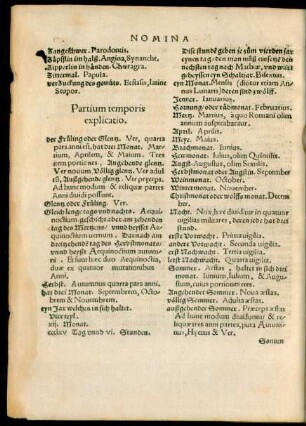 NOMINA
Zangeschwer. Parodontis.
Zäpflin im halß. Angina, Synanche.
Zipperlin in händen. Chiragra.
Zittermal. Papula.
verzuckung des gemüts. Ecstasis, latine
Stupor.
Partium temporis
explicatio.
der Früling oder Glentz. Ver, quarta
pars anni est, hat drei Monat. Martium,
Aprilem, & Maium. Tres
item partitiones. Angehend glentz.
Ver nouum, völlig glentz. Ver adultum,
Außgehend glentz. Ver præceps.
Ad hunc modum & reliquæ partes
Anni diuidi possunt.
Glentz oder Früling. Ver.
Gleich lenge tags vnd nachts. Aequinoctium
geschicht aber am zehenden
tag des Mertzens vnd heyßt Aequinoctium vernum.
am
tag des Herbstmonats
vnnd heyßt Aequinoctium autumnale.
sunt ergo duo Aequinoctia,
duæ ex quatuor mutationibus
Anni.
Herbst. Autumnus quarta pars anni,
hat drei Monat. Septembrem, Octobrem
& Nouembrem.
eyn Jar welches in sich haltet.
Vier teyl.
xij. Monat.
ccclxv Tag vnnd vi. Stunden.
Dise stund geben je züm vierden jar
eynen tag, den man müß einsetzen den
nechsten tag nach Mathiæ, vnd würt
geheyssen eyn Schaltjar. Bisextus.
eyn Monat. Mensis (dicitur etiam Annus
Lunaris) deren sind zwölff.
Jenner. Ianuarius.
Hornung oder rädmonat. Februarius.
Mertz. Martius, à quo Romani olim
annum auspicabantur.
April. Aprilis.
Mey. Maius.
Brachmonat. Iunius.
Heümonat. Iulius, olim Quintilis.
Augst. Augustus, olim Sextilis.
Herbstmonat oder Augstin. September
October.
Wintermonat. Nouember.
Christmonat oder wolffsmonat. December.
Nacht. Nox, hæc diuiditur in quatuor
uigilias militares, deren iede hat drei
stund.
erste Vorwacht. Prima uigilia.
ander Vorwacht. Secunda uigilia.
erst Nachtwacht. Tertia uigilia.
letst Nachtwacht. Quarta uigilia.
Sommer. Aestas, haltet in sich drei
Monat. Iunium, Iulium, & Augustum,
cuius partitiones sunt.
Angehender Sommer. Noua æstas.
völlig Sommer. Adulta æstas.
außgehender Sommer. Præceps æstas
Ad hunc modum diuiduntur & reliquæ
tres anni partes, puta Autumnus,
Hyems & Ver.
Sonnen